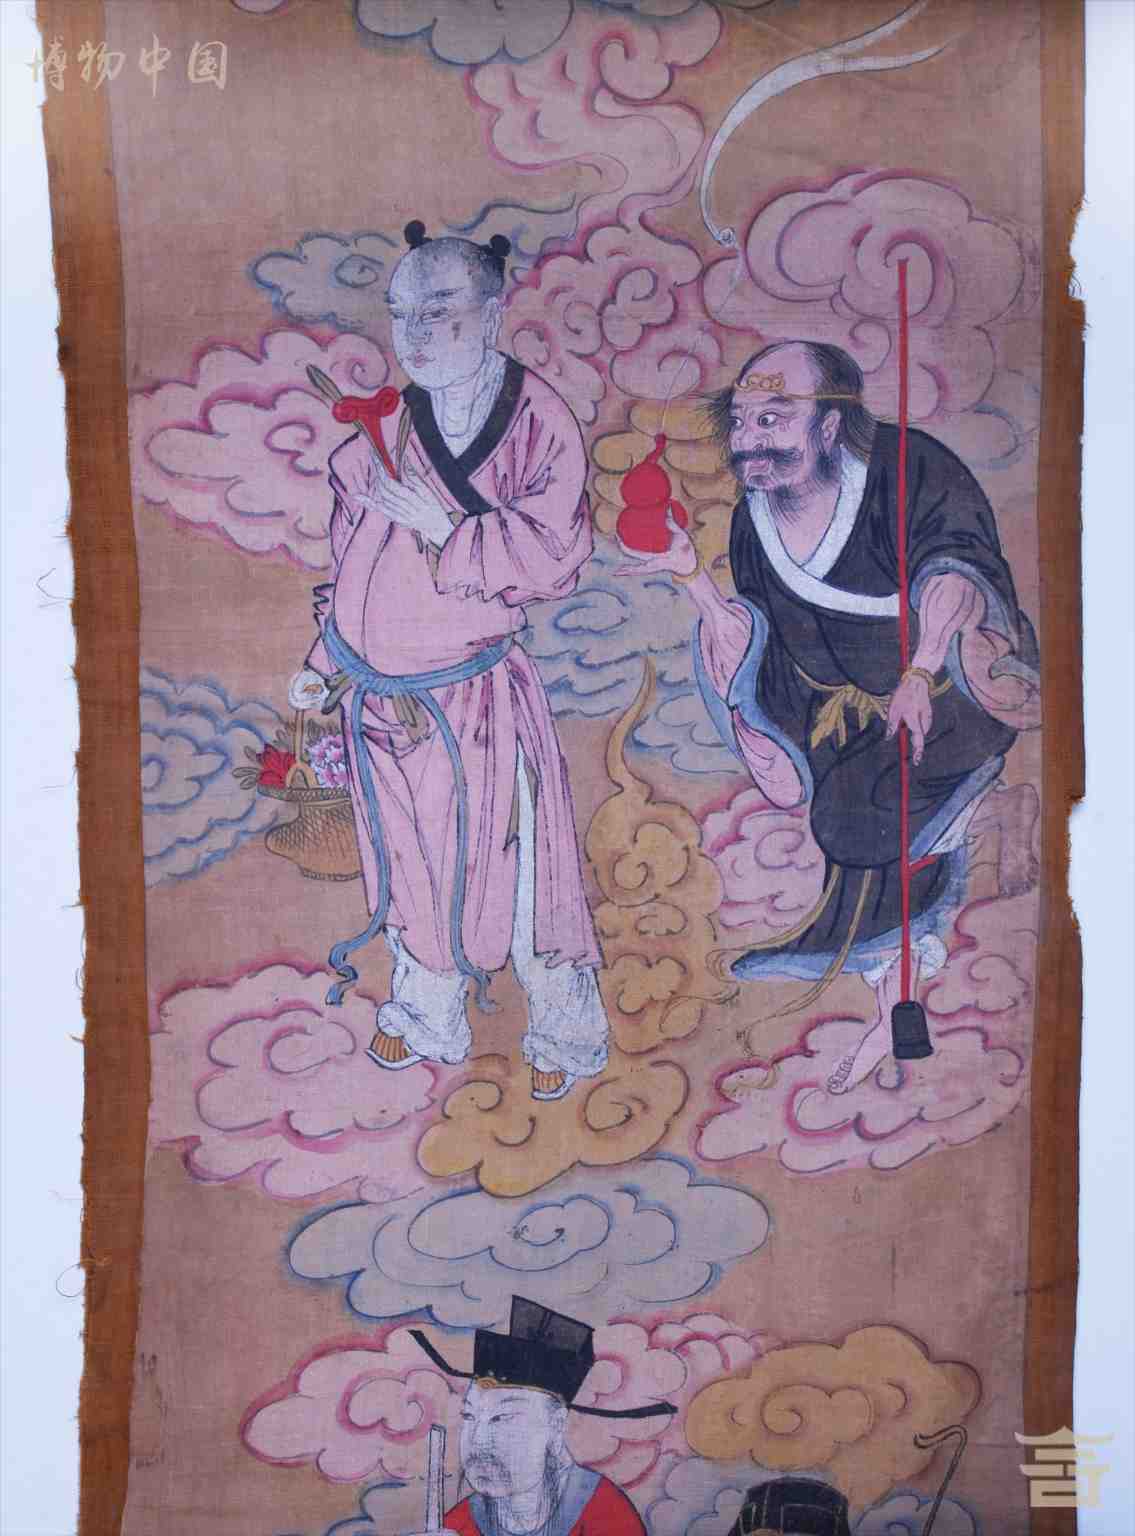 博物中国